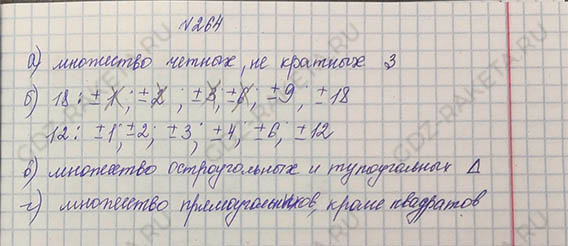 №264
а) множество четных, не кратных 3
б) 18: ±1; ±2; ±3; ±6; ±9; ±18
12: ±1; ±2; ±3; ±4; ±6; ±12
в) множество остроугольных и тупоугольных Δ
г) множество прямоугольников, кроме квадратов
GDZ-RAKETA.RU